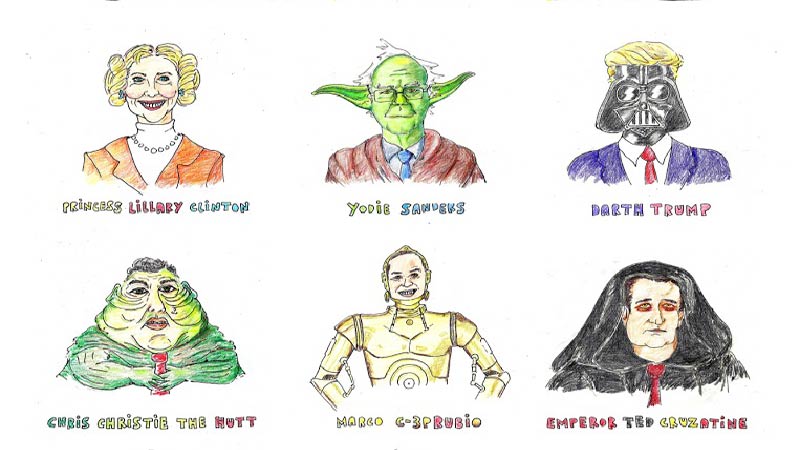 PRINCESS LILLARY CLINTON
YODIE SANDERS
DARTH TRUMP
CHRIS CHRISTIE THE HUTT
MARCO C-3PRUBIO
EMPEROR TED CRUZATINE